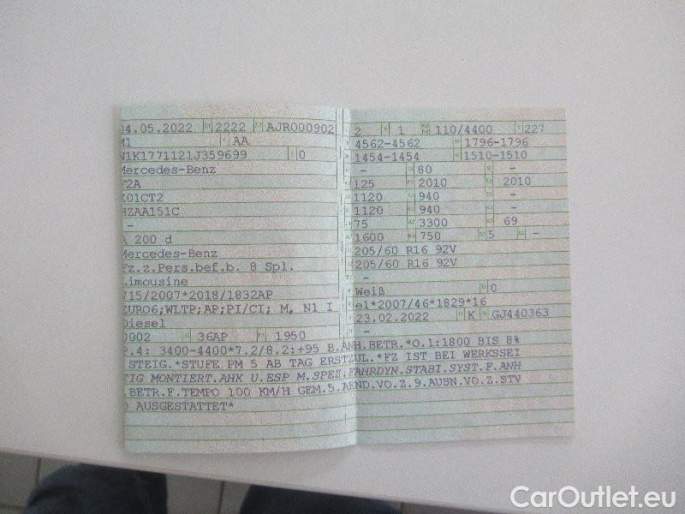 04.05.2022 2222 AJR000902
M1 AA
W1K1771121J359699 0
Mercedes-Benz
F2A
K01CT2
HZAA151C
-
A 200 d
Mercedes-Benz
Fz.z.Pers.bef.b. 8 Spl.
Limousine
715/2007*2018/1832AP
EURO6;WLTP;AP;PI/CI; M, N1 I
Diesel
0002 36AP 1950
P.4: 3400-4400*7.2/8.2:+95 B.ANH.BETR.*O.1:1800 BIS 8%
STEIG.*STUFE PM 5 AB TAG ERSTZUL.*FZ IST BEI WERKSSEI
TIG MONTIERT.AHK U.ESP M.SPEZ.FAHRDYN.STABI.SYST.F.ANH
.BETR.F.TEMPO 100 KM/H GEM.5.ÄND.VO.Z.9.AUSN.VO.Z.STV
O AUSGESTATTET*
2 1 110/4400 227
4562-4562 1796-1796
1454-1454 1510-1510
- 80 -
125 2010 2010
1120 940 -
1120 940 -
75 3300 69
1600 750 5 -
205/60 R16 92V
205/60 R16 92V
-
Weiß 0
e1*2007/46*1829*16
23.02.2022 K GJ440363
CarOutlet.eu